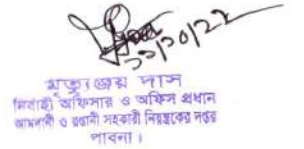 ২০/১০/২২
মৃত্যুঞ্জয় দাস
নির্বাহী অফিসার ও অফিস প্রধান
আমদানী ও রপ্তানী সহকারী নিয়ন্ত্রকের দপ্তর
পাবনা।